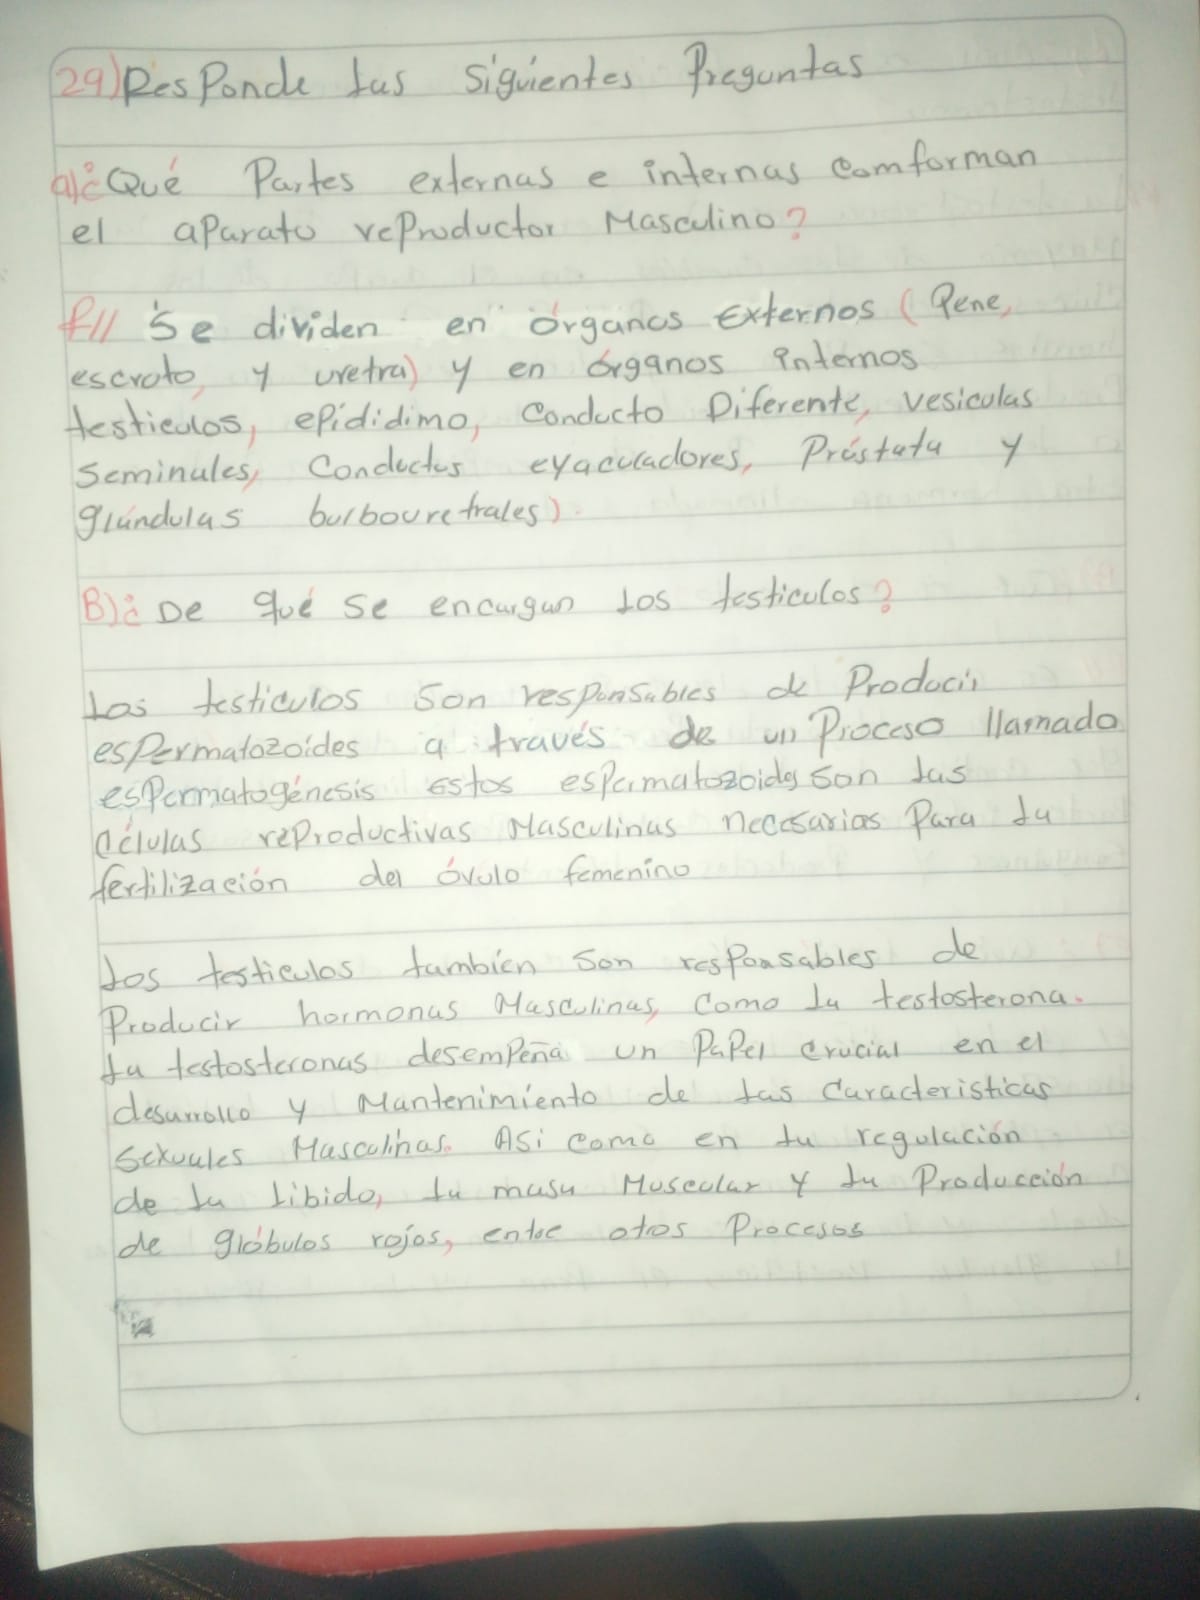 29) Responde las siguientes Preguntas
a) ¿Qué Partes externas e internas comforman
el aparato reproductor Masculino?
R// Se dividen en órganos Externos (Pene,
escroto, y uretra) y en órganos internos
testiculos, epídidimo, Conducto Diferente, vesiculas
Seminales, Conductos eyaculadores, Próstata y
glándulas bulbouretrales).
B) ¿De qué se encargan los testiculos?
Los testiculos son responsables de Producir
espermatozoides a través de un Proceso llamado
espermatogénesis estos espermatozoides son las
células reproductivas Masculinas necesarias Para la
fertilización del óvulo femenino
Los testiculos tambien son responsables de
Producir hormonas Masculinas, Como la testosterona.
La testosteronas desempeña un Papel crucial en el
desarrollo y Mantenimiento de las Caracteristicas
sexuales Masculinas. Asi como en la regulación
de la libido, la masa Muscular y la Producción
de glóbulos rojos, entre otros Procesos